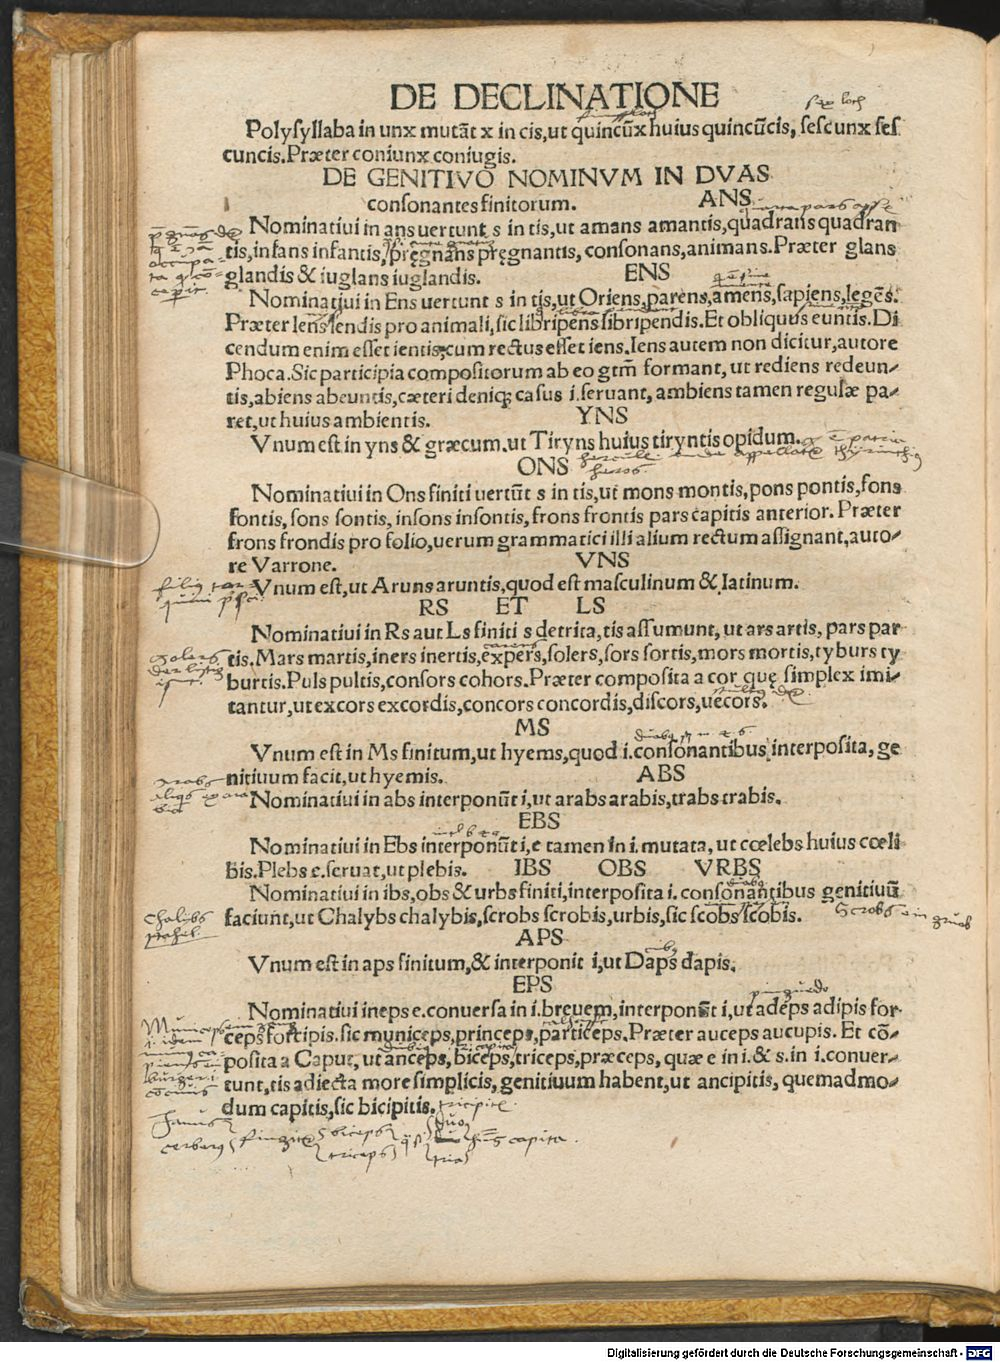 DE DECLINATIONE
Polysyllaba in unx mutāt x in cis, ut quincūx huius quincūcis, sescunx ses
cuncis. Præter coniunx coniugis.
DE GENITIVO NOMINVM IN DVAS
consonantes finitorum. ANS
Nominatiui in ans uertunt s in tis, ut amans amantis, quadrans quadran
tis, infans infantis, pręgnans pręgnantis, consonans, animans. Præter glans
glandis & iuglans iuglandis. ENS
Nominatiui in Ens uertunt s in tis, ut Oriens, parens, amens, sapiens, legēs.
Præter lens lendis pro animali, sic libripens libripendis. Et obliquus euntis. Di
cendum enim esset ientis, cum rectus esset iens. Iens autem non dicitur, autore
Phoca. Sic participia compositorum ab eo gtm formant, ut rediens redeun-
tis, abiens abeuntis, cæteri deniq; casus i. seruant, ambiens tamen regulæ pa-
ret, ut huius ambientis. YNS
Vnum est in yns & græcum. ut Tiryns huius tiryntis opidum.
ONS
Nominatiui in Ons finiti uertūt s in tis, ut mons montis, pons pontis, fons
fontis, sons sontis, insons insontis, frons frontis pars capitis anterior. Præter
frons frondis pro folio, uerum grammatici illi alium rectum assignant, auto-
re Varrone. VNS
Vnum est, ut Aruns aruntis, quod est masculinum & latinum.
RS ET LS
Nominatiui in Rs aut Ls finiti s detrita, tis assumunt, ut ars artis, pars par
tis. Mars martis, iners inertis, expers, solers, sors sortis, mors mortis, tyburs ty
burtis. Puls pultis, consors cohors. Præter composita a cor que simplex imi-
tantur, ut excors excordis, concors concordis, discors, uecors.
MS
Vnum est in Ms finitum, ut hyems, quod i. consonantibus interposita, ge
nitiuum facit, ut hyemis. ABS
Nominatiui in abs interponūt i, ut arabs arabis, trabs trabis.
EBS
Nominatiui in Ebs interponūt i, e tamen in i. mutata, ut cœlebs huius cœli
bis. Plebs e. seruat, ut plebis. IBS OBS VRBS
Nominatiui in ibs, obs & urbs finiti, interposita i. consonantibus genitiuū
faciunt, ut Chalybs chalybis, scrobs scrobis, urbis, sic scobs scobis.
Chalybs
stahel.
APS
Vnum est in aps finitum, & interponit i, ut Daps dapis.
EPS
Nominatiui in eps e. conuersa in i. breuem, interponūt i, ut adeps adipis for
ceps forcipis. sic municeps, princeps, particeps. Præter auceps aucupis. Et cō-
posita a Caput, ut anceps, biceps, triceps, præceps, quæ e in i. & s. in i. conuer-
tunt, tis adiecta more simplicis, genitiuum habent, ut ancipitis, quemadmo-
dum capitis, sic bicipitis.
Digitalisierung gefördert durch die Deutsche Forschungsgemeinschaft - DFG